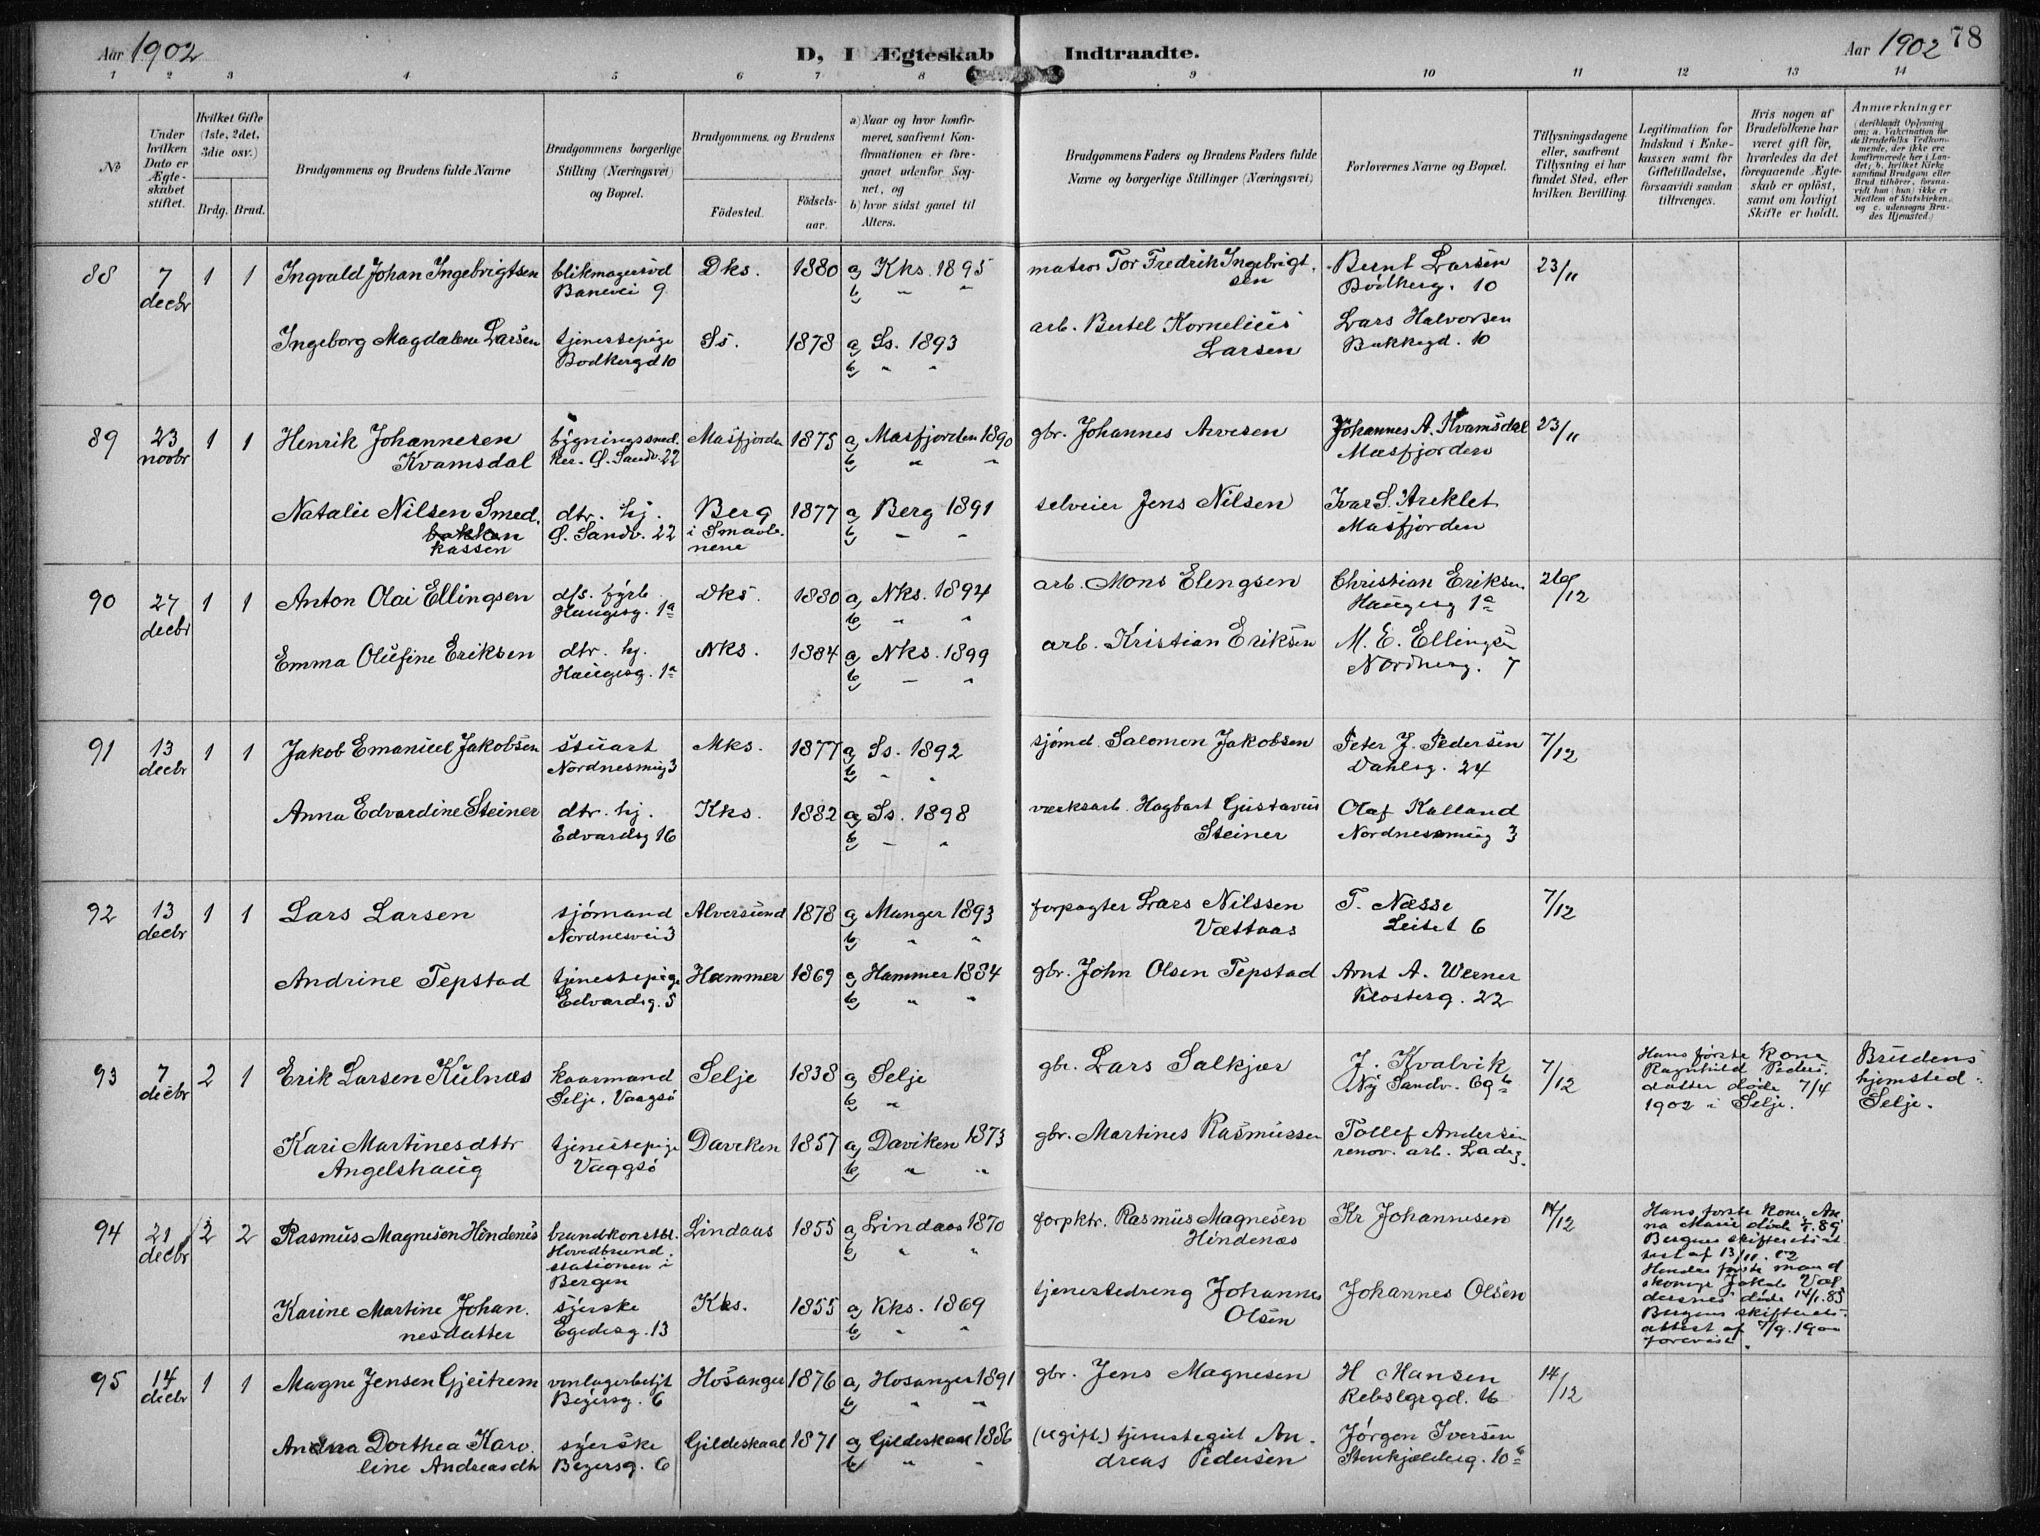 Aar 1902
D, I Ægteskab Indtraadte.
Aar 1902 78
1 2 3 4 5 6 7 8 9 10 11 12 13 14
No
Under hvilken Dato er Ægteskabet stiftet.
Hvilket Gifte (1ste, 2det, 3die osv.)
Brdg. Brud.
Brudgommens og Brudens fulde Navne
Brudgommens borgerlige Stilling (Næringsvei) og Bopæl.
Brudgommens og Brudens
Födested.
Födsels-aar.
a) Naar og hvor konfirmeret, saafremt Konfirmationen er foregaaet udenfor Sognet, og
b) hvor sidst gaaet til Alters.
Brudgommens Faders og Brudens Faders fulde Navne og borgerlige Stillinger (Næringsvei)
Forlovernes Navne og Bopæl.
Tillysningsdagene eller, saafremt Tillysning ei har fundet Sted, efter hvilken Bevilling.
Legitimation for Indskud i Enkekassen samt for Giftetilladelse, forsaavidt saadan tiltrænges.
Hvis nogen af Brudefolkene har været gift för, hvorledes da det foregaaende Ægteskab er oplöst, samt om lovligt Skifte er holdt.
Anmærkninger
88 7 decbr 1 1 Ingvald Johan Ingebrigtsen blikmagersvd Banevei 9 Dks. 1880 a, Kks. 1895 b, " " matros Tor Fredrik Ingebrigtsen Bernt Larsen Bödkerg. 10 23/11
Ingeborg Magdalene Larsen tjenestepige Bödkergd 10 Ss. 1878 a, Ss. 1893 b, " " arb. Bertel Kornelius Larsen Lars Halvorsen Bakkegd. 10
89 23 novbr 1 1 Henrik Johannesen Kvamsdal bygningssnedker. Ø. Sandv. 22 Masfjorden 1875 a, Masfjorden 1890 b, " " gbr. Johannes Avesen Johannes A. Kvamsdal Masfjorden 23/11
Natalie Nilsen Smed. kassen dtr. hj. Ø. Sandv. 22 Berg i Smaalenene 1877 a, Berg 1891 b, " " selveier Jens Nilsen Ivar S. Areklet Masfjorden
90 27 decbr 1 1 Anton Olai Ellingsen d/s. fyrb. Haugesg. 1a Dks. 1880 a, Nks. 1894 b, " " arb. Mons Elengsen Christian Eriksen Haugesg 1a 26/12
Emma Olufine Eriksen dtr. hj. Haugesg. 1a Nks. 1884 a, Nks. 1899 b, " " arb. Kristian Eriksen M. E. Ellingse Nordnesg. 7
91 13 decbr 1 1 Jakob Emanuel Jakobsen stuart Nordnesmug 3 Mks. 1877 a, Ss. 1892 b, " " sjömd. Salomon Jakobsen Peter J. Pedersen Dahlsg. 24 7/12
Anna Edvardine Steiner dtr. hj. Edvardsg 16 Kks. 1882 a, Ss. 1898 b, " " værksarb. Hagbart Gustavus Steiner Olaf Kalland Nordnesmug 3
92 13 decbr 1 1 Lars Larsen sjömand Nordnesvei 3 Alversund 1878 a, Manger 1893 b, " " forpagter Lars Nilssen Vættaas T. Næsse Leitet 6 7/12
Andrine Tepstad tjenestepige Edvardsg. 5 Hammer 1869 a, Hammer 1884 b, " " gbr. John Olsen Tepstad Arnt A. Werner Klosterg. 22
93 7 decbr 2 1 Erik Larsen Kulnæs kaarmand Selje, Vaagsö Selje 1838 a, Selje b, " gbr. Lars Salkjær J. Kvalvik Ny Sandv. 69b 7/12 Hans første kone Ragnhild Pedersdatter døde 7/4 1902 i Selje. Brudens hjemsted: Selje.
Kari Martinesdttr Angelshaug tjenestepige Vaagsö Daviken 1857 a, Daviken 1873 b, " " gbr. Martines Rasmussen Tollef Andersen renov. arb. Ladeg.
94 21 decbr 2 2 Rasmus Magnesen Hindenes brandkonstbl. Hovedbrandstationen i Bergen Lindaas 1855 a, Lindaas 1870 b, " " forpktr. Rasmus Magnesen Hindenæs Kr Johannesen 14/12 Hans forste kone, Anna Marie døde 89 Bergens skifteretsattest af 13/11. 02 Hendes første mand Jakob døde 14/1. 85 Bergens skifteretsattest af 7/9. 1900 forevist.
Karine Martine Johannesdatter syerske Egedesg. 13 Kks. 1855 a, Kks. 1869 b, " " tjenestedreng Johannes Olsen Johannes Olsen
95 14 decbr 1 1 Magne Jensen Gjeitrem Beyersg. 6 Hosanger 1876 a, Hosanger 1891 b, " " gbr. Jens Magnesen H Hansen 14/12
Dorthea Karoline Andreasdtr syerske Beyersg. 6 Gildeskaal 1871 a, Gildeskaal 1886 b, " " (ugift.) tjenestegut Andreas Pedersen Jørgen Iversen